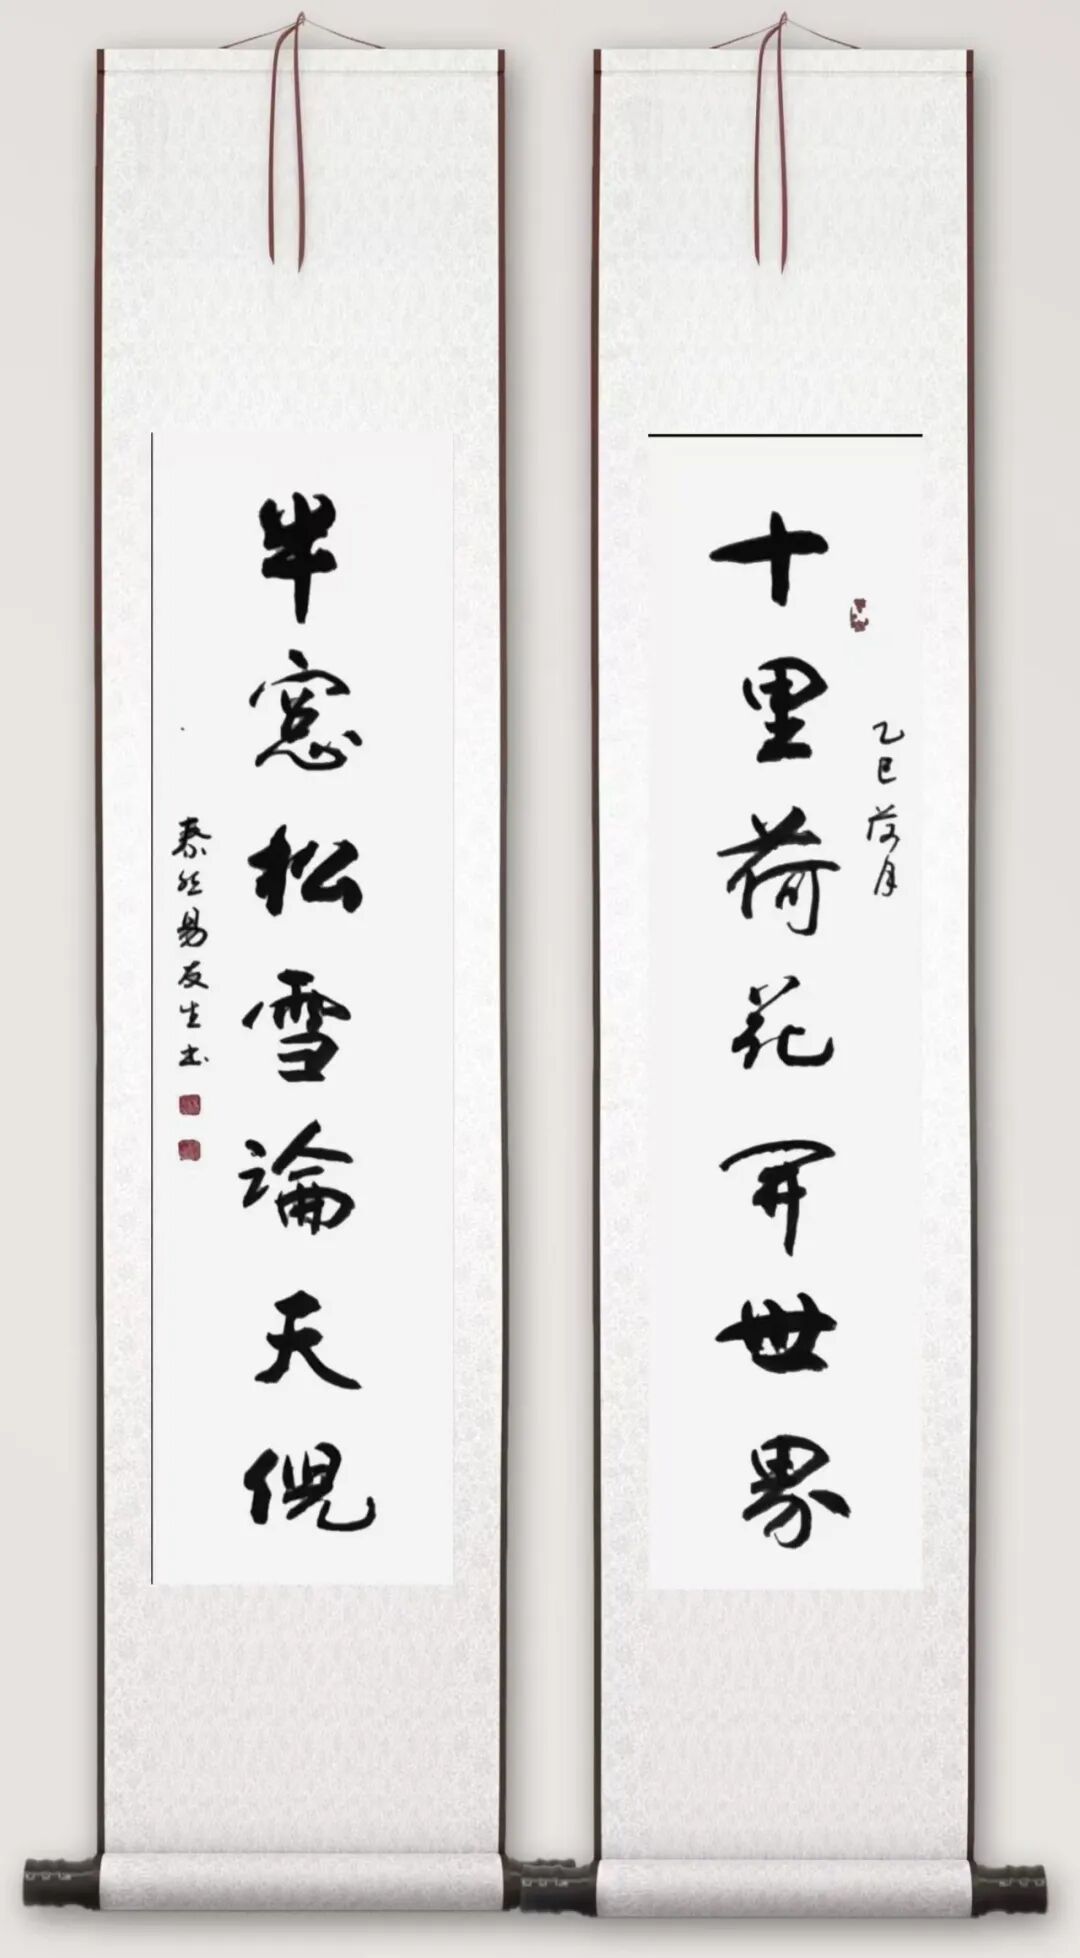 乙巳荷月
十里荷花开世界
半窓松雪論天倪
泰然易友生书